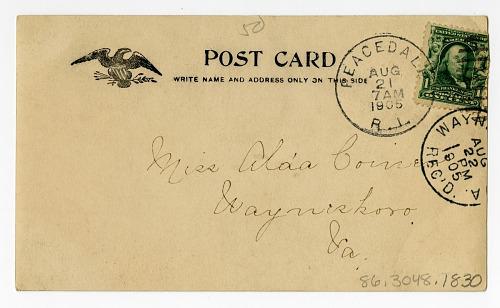 50
POST CARD
WRITE NAME AND ADDRESS ONLY ON THIS SIDE
PEACEDALE
AUG
21
7AM
1905
R.I.
WAYN
AUG
22
2PM
1905
A
REC'D.
Miss Alda Coiner
Waynisboro
Va.
86.3048.1830